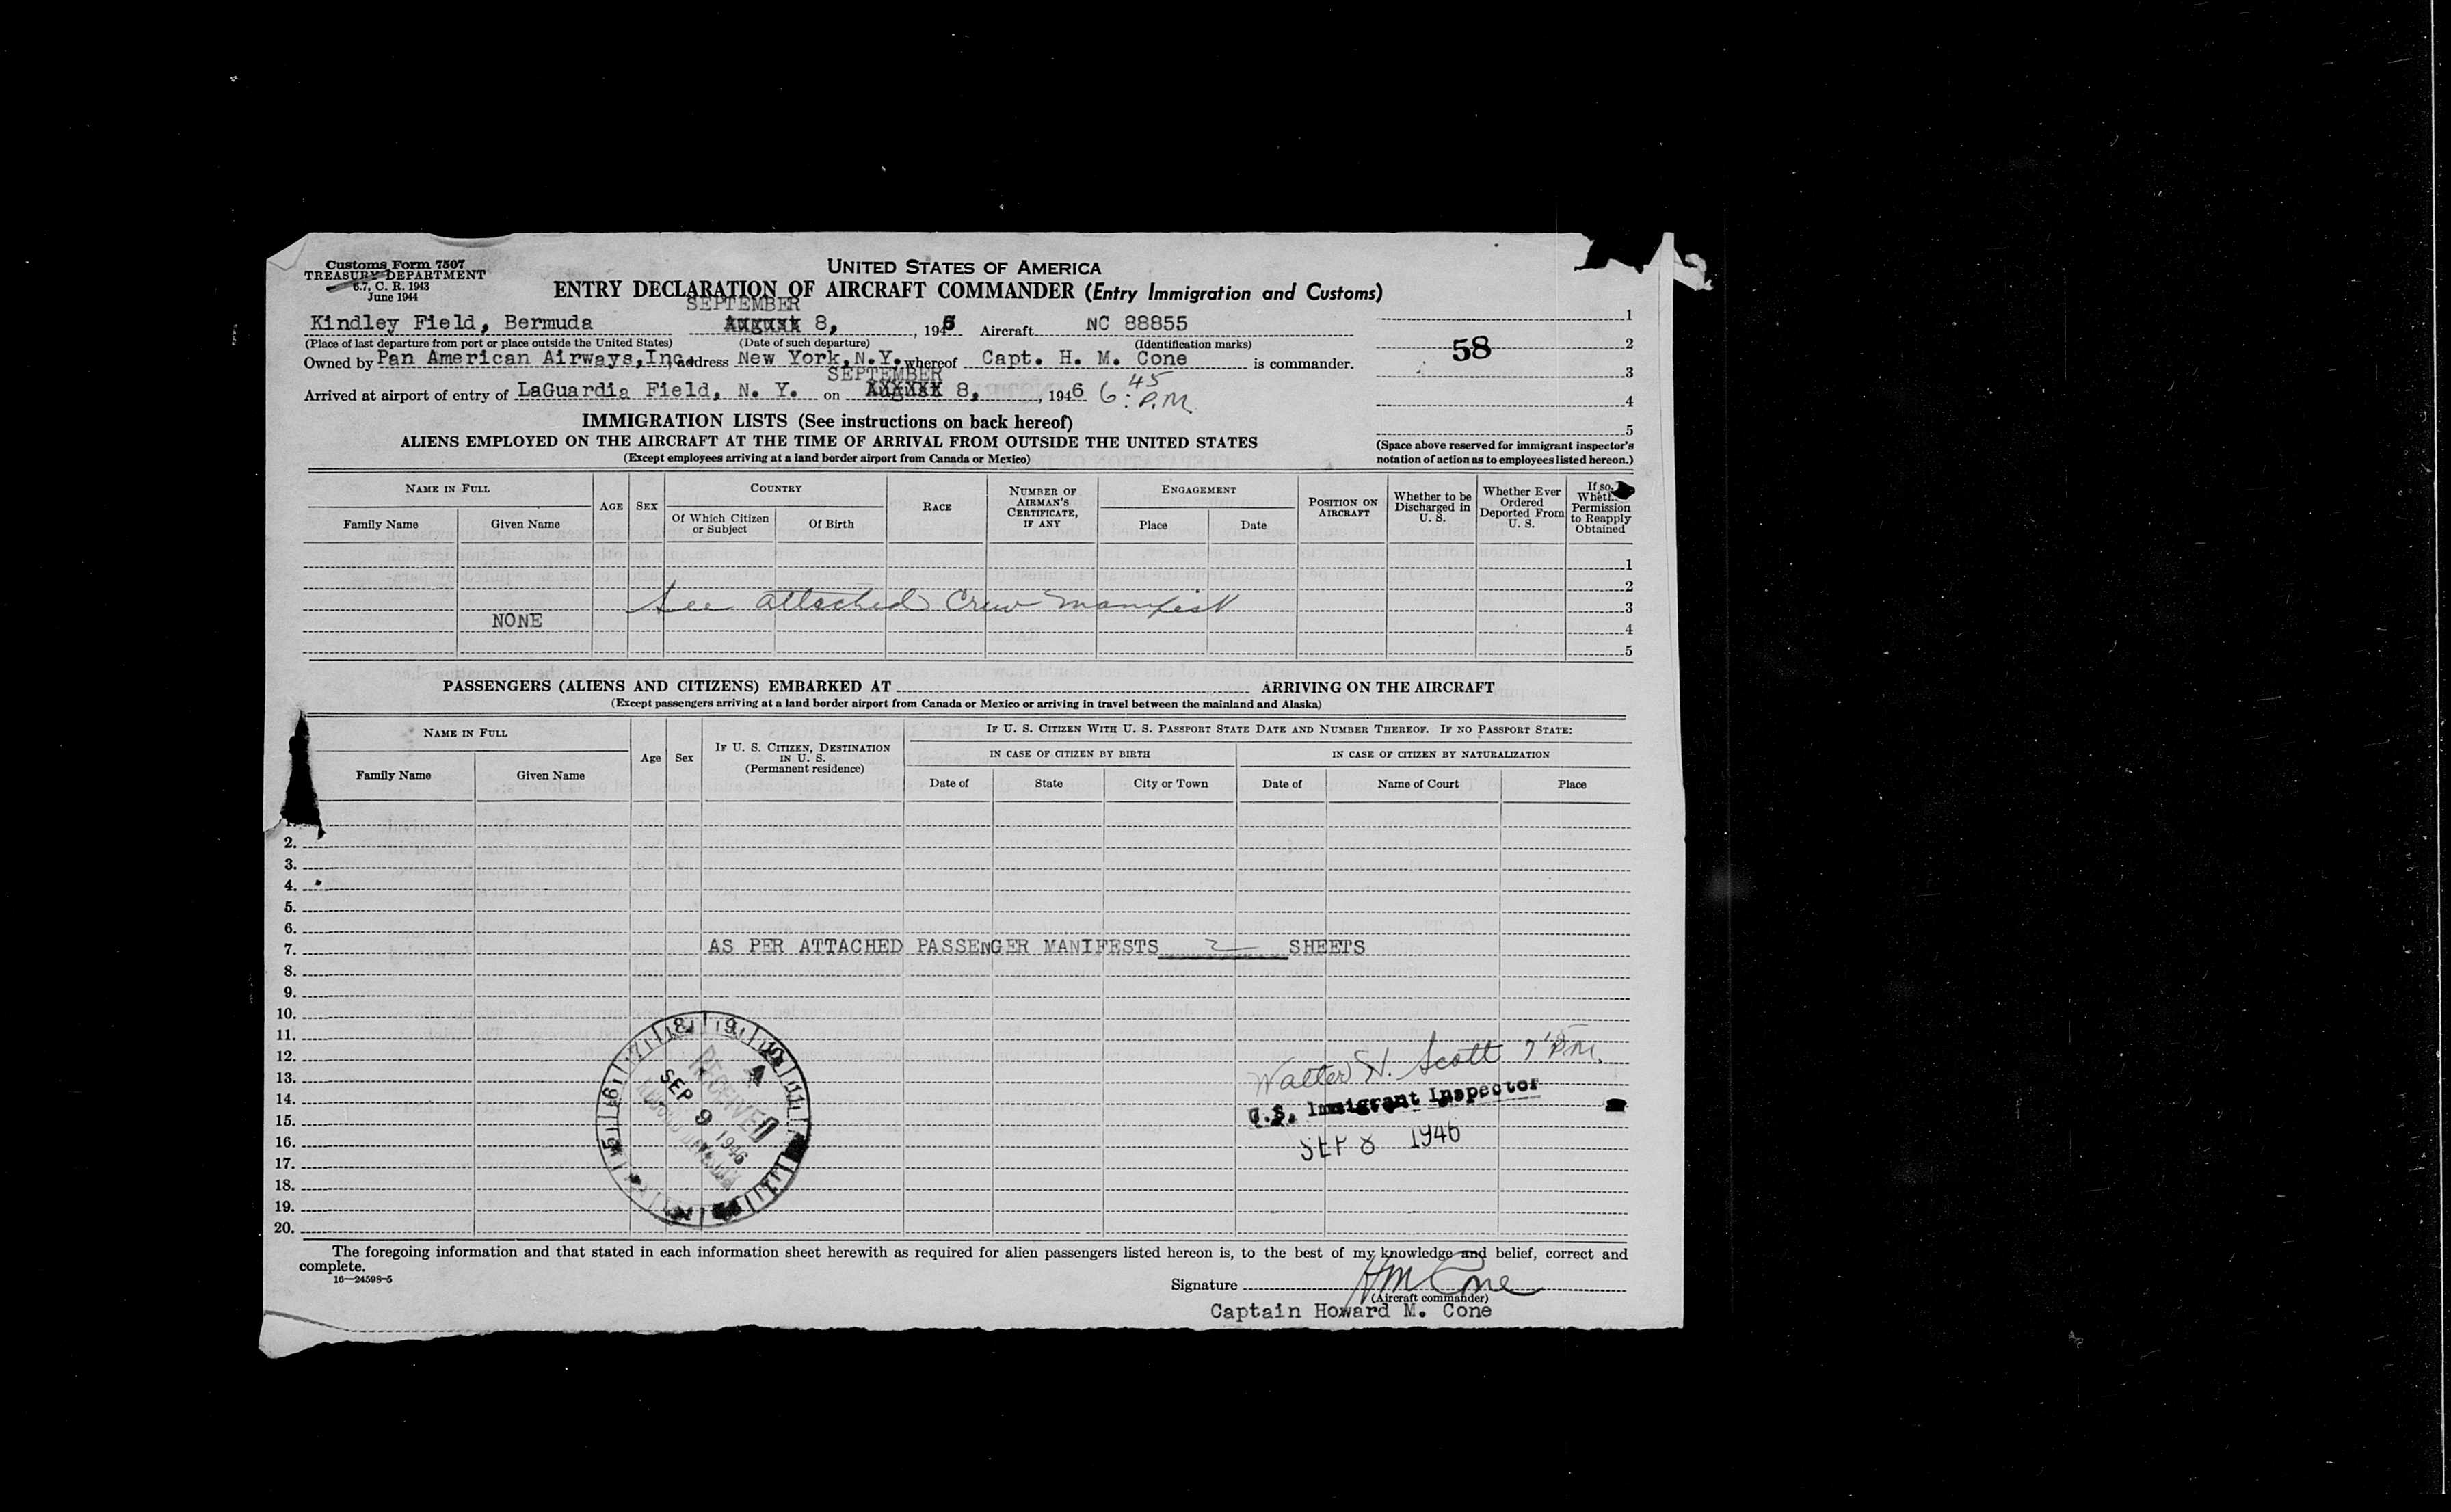 Customs Form 7507
TREASURY DEPARTMENT
6.7, C. R. 1943
June 1944
UNITED STATES OF AMERICA
ENTRY DECLARATION OF AIRCRAFT COMMANDER (Entry Immigration and Customs)
SEPTEMBER
Kindley Field, Bermuda August 8, , 1946 Aircraft NC 88855
(Place of last departure from port or place outside the United States) (Date of such departure) (Identification marks)
Owned by Pan American Airways, Inc. address New York, N.Y. whereof Capt. H. M. Cone is commander.
SEPTEMBER
Arrived at airport of entry of LaGuardia Field, N. Y. on 8, , 1946 6:45 P.M.
1
2
58
3
4
5
(Space above reserved for immigrant inspector's notation of action as to employees listed hereon.)
IMMIGRATION LISTS (See instructions on back hereof)
ALIENS EMPLOYED ON THE AIRCRAFT AT THE TIME OF ARRIVAL FROM OUTSIDE THE UNITED STATES
(Except employees arriving at a land border airport from Canada or Mexico)
NAME IN FULL
Family Name Given Name
AGE SEX
COUNTRY
Of Which Citizen or Subject Of Birth
RACE
NUMBER OF AIRMAN'S CERTIFICATE, IF ANY
ENGAGEMENT
Place Date
POSITION ON AIRCRAFT
Whether to be Discharged in U. S.
Whether Ever Ordered Deported From U. S.
If so, Permission to Reapply Obtained
1
2
See attached Crew Manifest 3
NONE 4
5
PASSENGERS (ALIENS AND CITIZENS) EMBARKED AT ARRIVING ON THE AIRCRAFT
(Except passengers arriving at a land border airport from Canada or Mexico or arriving in travel between the mainland and Alaska)
NAME IN FULL
Family Name Given Name
Age Sex
IF U. S. CITIZEN, DESTINATION IN U. S. (Permanent residence)
IF U. S. CITIZEN WITH U. S. PASSPORT STATE DATE AND NUMBER THEREOF. IF NO PASSPORT STATE:
IN CASE OF CITIZEN BY BIRTH IN CASE OF CITIZEN BY NATURALIZATION
Date of State City or Town Date of Name of Court Place
1.
2.
3.
4.
5.
6.
7. AS PER ATTACHED PASSENGER MANIFESTS 2 SHEETS
8.
9.
10.
11.
12.
13.
14.
15.
16.
17.
18.
19.
20.
RECEIVED
SEP 9 1946
Walter N. Scott 7 P.M.
U.S. Immigrant Inspector
SEP 8 1946
The foregoing information and that stated in each information sheet herewith as required for alien passengers listed hereon is, to the best of my knowledge and belief, correct and
complete.
16—24598-5
Signature HM Cone
(Aircraft commander)
Captain Howard M. Cone